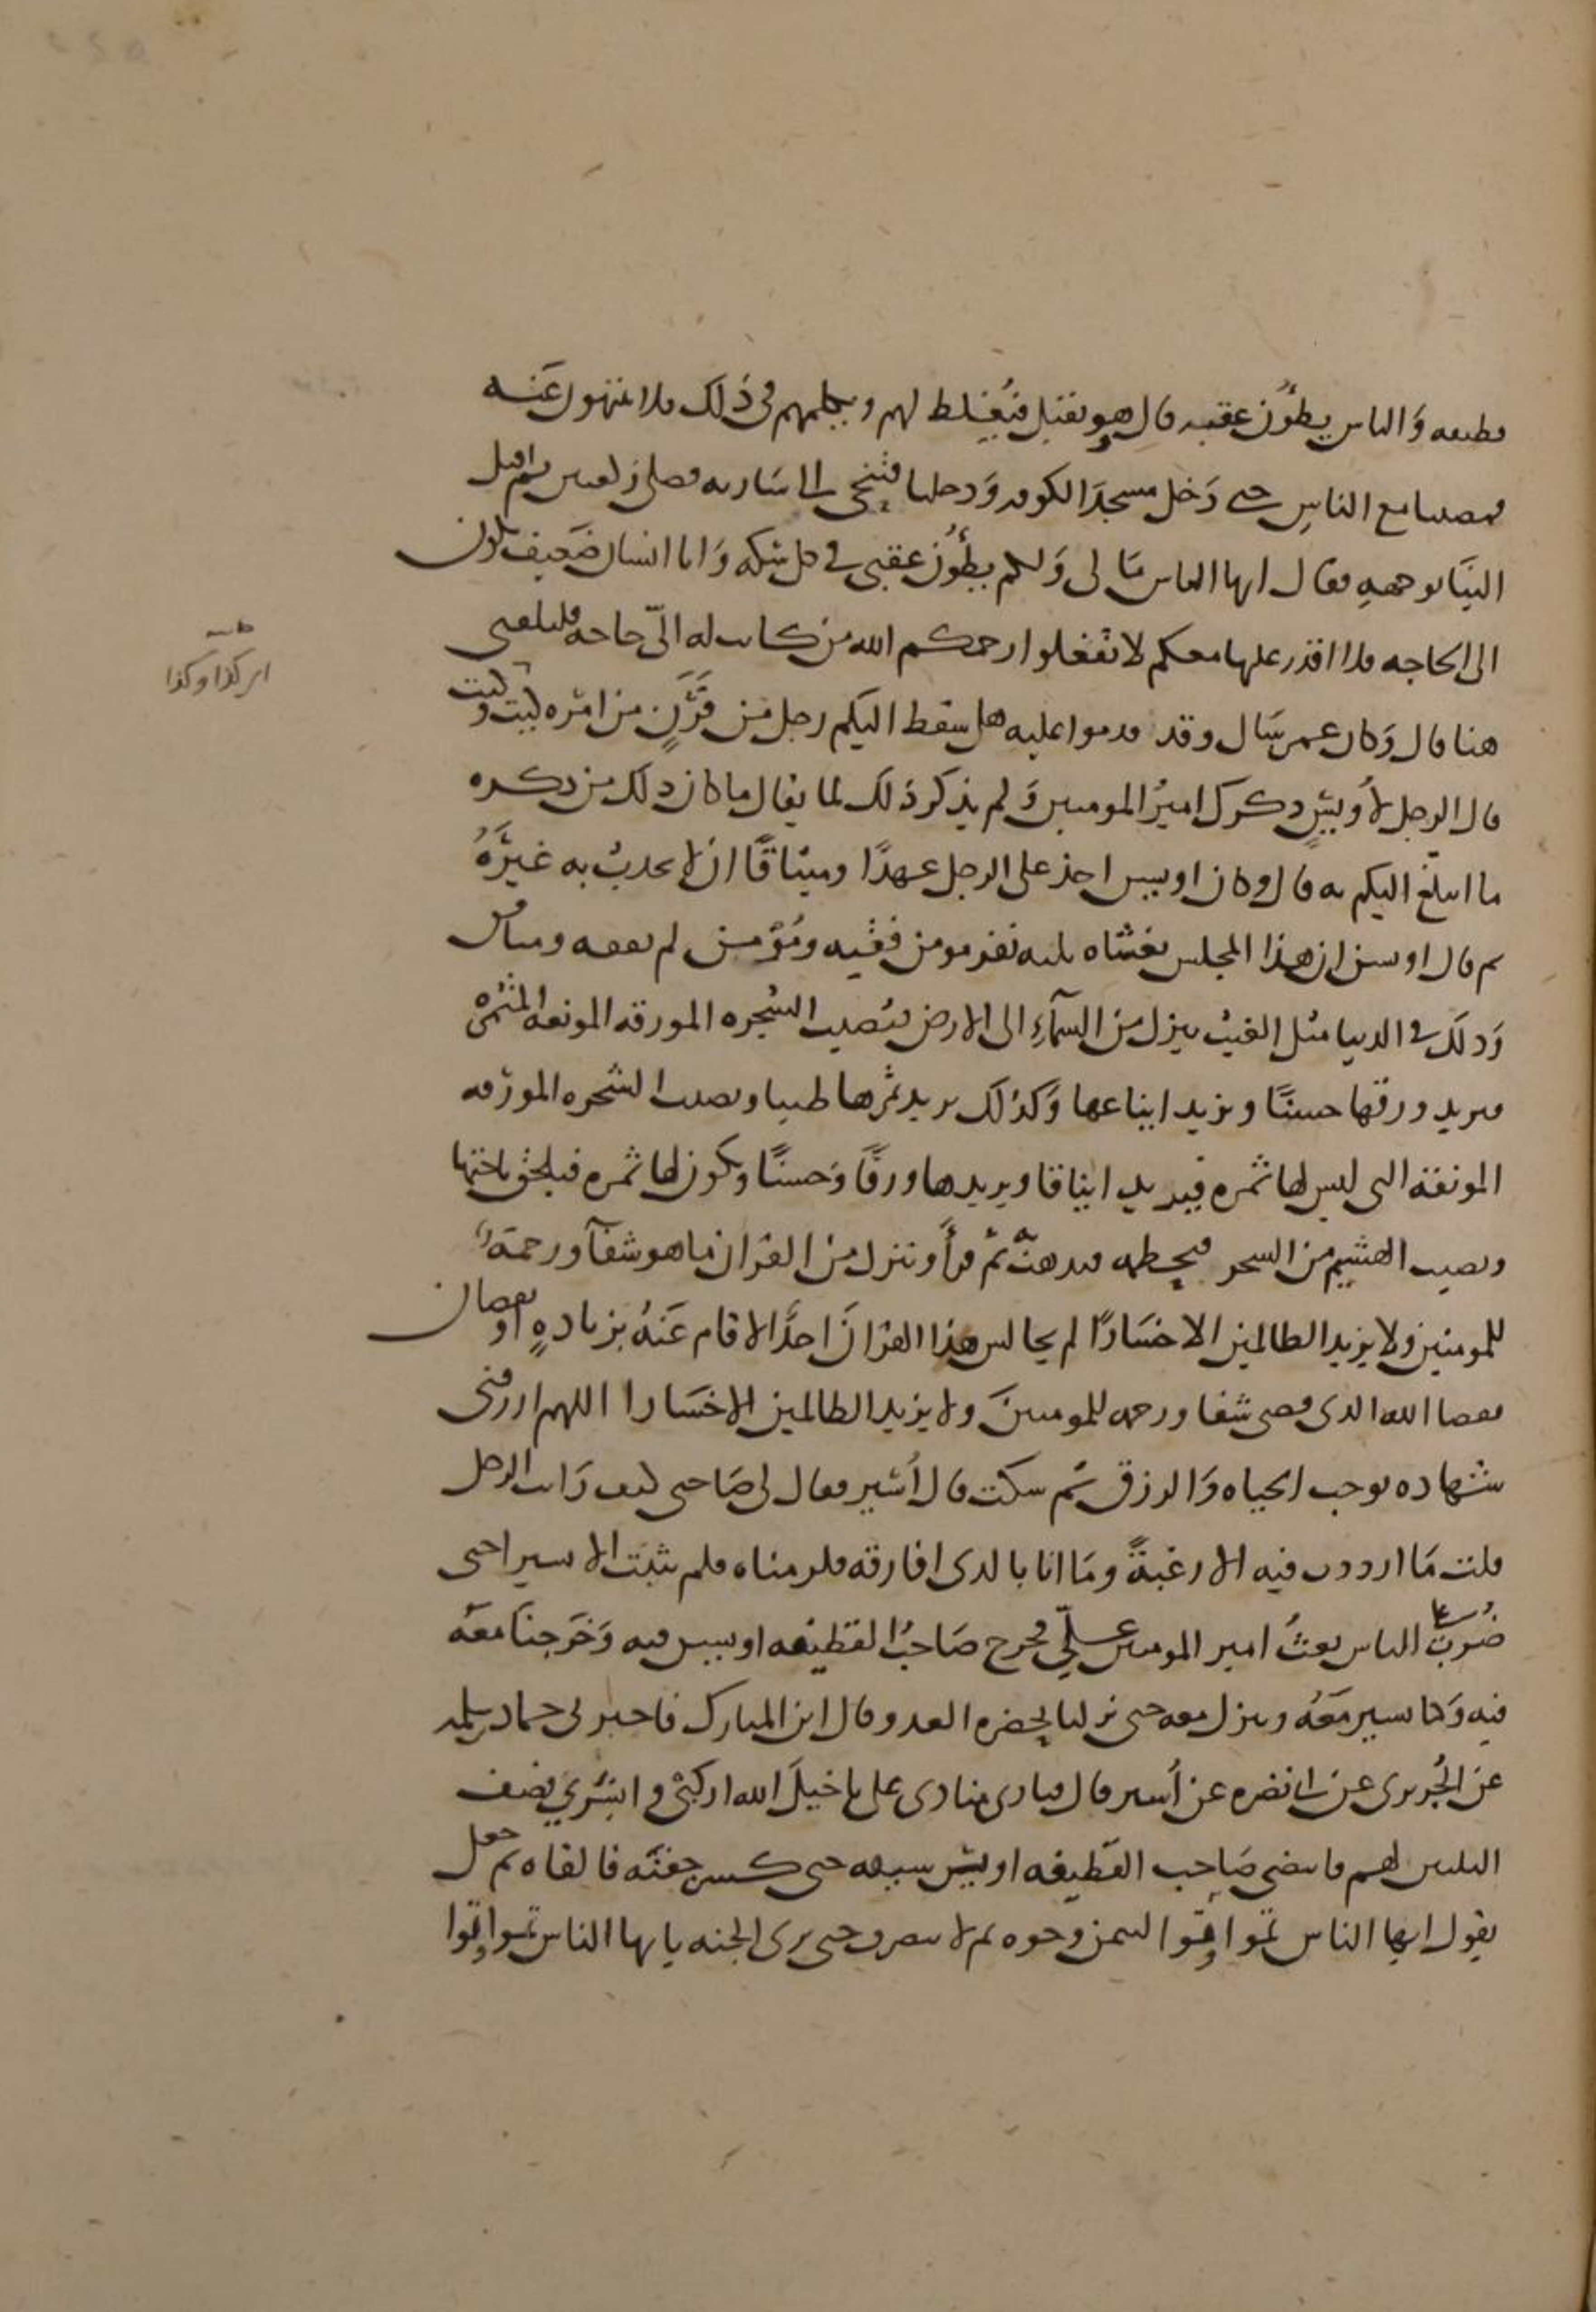 قطيفه وَالناس يطؤُن عقبه قال وهو يقبل فيُغلظ لهم ويكلمهم فى ذَلك فلا ينتهون عَنه
فمضينا مع الناسِ حتى دَخل مسجدَ الكوفه وَدخلنا فتنحى الى ساريه فصلى ركعتين ثم اقبل
الينَا بوجههِ فقال ايها الناس مَا لى وَلكم يطؤُن عقبى فى كل سكه وَانا انسان ضعيف تكون
الى الحاجه فلا اقدر عليها معكم لا تفعلوا رحمكم الله من كانت له الىّ حاجه فليلقنى
هنا قال وَكان عمر سَال وفد قدموا عليه هل سقط اليكم رجل من قَرَنٍ من امره كيت وكيت
قال الرجل لأُويسٍ ذكرك اميرُ المومنين وَلم يذكر ذلك لما يقال ما كان ذلك من ذكره
ما ابلغ اليكم به قال وكان اويس اخذ على الرجل عهدًا وميثاقًا ان لا يحدث به غيرَهُ
ثم قال اويس ان هذا المجلس يغشاه ثلثه نفر مومن فقيه ومُؤمن لم يفقه ومنافق
وَذلك فى الدنيا مثل الغيث ينزل من السمآءِ الى الارض فيُصيب الشجره المورقه المونعه المثمره
فيزيد ورقها حسنًا ويزيد ايناعها وَكذلك يزيد ثمرها طيبا ويصيب الشجره المورقه
المونقة التى ليس لها ثمره فيزيد ايناقا ويزيدها ورقًا وَحسنًا ويكون لها ثمره فيلحق باختها
ويصيب الهشيم من الشجر فيحطمه فيذهبُ به ثم قرأَ وننزل من القران ما هو شفآ ورحمة
للمومنين ولا يزيد الظالمين الا خسَارًا لم يجالس هذا القرانَ احدًا الا قام عَنهُ بزيادهٍ او نقصان
فقضا الله الذى قضى شفا ورحمه للمومنينَ ولا يزيد الظالمين الا خسَارا اللهم ارزقنى
شهاده توجب الحياه وَالرزق ثم سكت قال أُسَير فقال لى صَاحبى كيف رَايت الرجل
قلت مَا ازددت فيه الا رغبةً ومَا انا بالذى افارقه فلزمناه فلم يلبث الا يسيرا حتى
ضُرِبَ على الناس بعثُ امير المومنين علىّ فخرج صَاحبُ القطيفه اويس فيه وَخرجنَا معَه
فيه وَكنا نسير مَعَهُ وننزل معه حتى نزلنا بحضره العدو قال ابن المبارك فاخبرنى حماد بن سلمه
عن الجُريرى عن ابى نضره عن أُسير قال فنادى منادى على يا خيلَ الله اركبى وابشرى فصف
الثلثين لهم فانتضى صَاحب القطيفه اويس سيفه حتى كسر جفنَه فالقاه ثم جعل
يقول ايها الناس تموا تموا ليتمن وجوه ثم لا تنصرف حتى يرى الجنه يا ايها الناس تموا تموا
حاشية
امر كذا وكذا